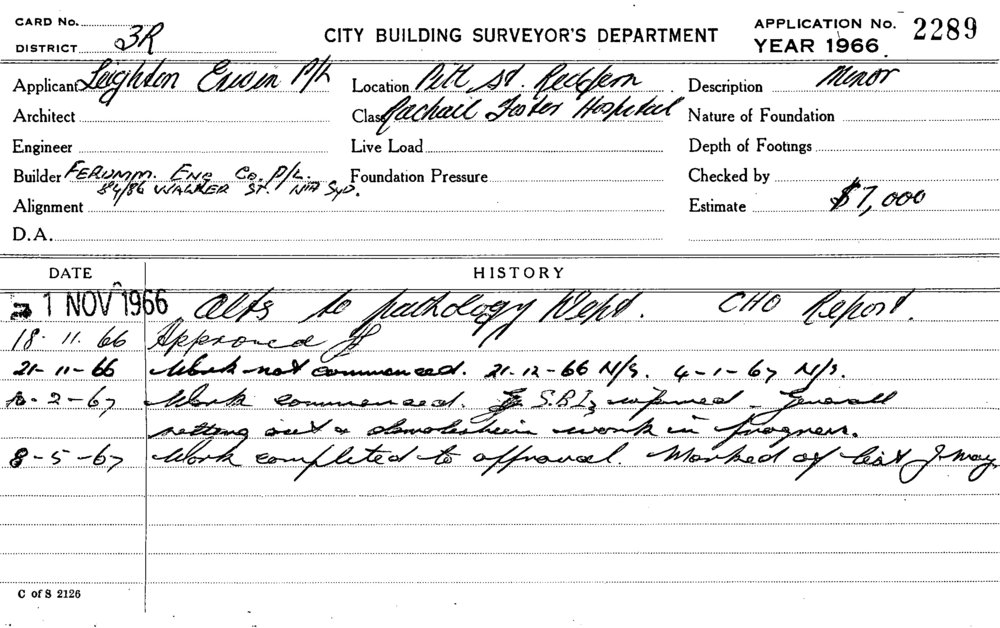 CARD No.
DISTRICT 3R
CITY BUILDING SURVEYOR'S DEPARTMENT
APPLICATION No. 2289
YEAR 1966
Applicant Leighton Erwin P/L Location Pitt St. Redfern Description Minor
Architect Class Rachail Foster Hospital Nature of Foundation
Engineer Live Load Depth of Footings
Builder FERUMM. ENG Co. P/L. Foundation Pressure Checked by
84/86 WALKER ST. Nth SYD.
Alignment Estimate $7,000
D.A.
DATE HISTORY
1 NOV 1966 Alts to pathology Dept. CHO Report.
18. 11. 66 Approved
21-11-66 Work not commenced. 21-12-66 N/S. 4-1-67 N/S.
10-2-67 Work commenced. S.B.I. informed - Generall
setting out & demolishein work in progress.
8-5-67 Work completed to approval. Marked off list J. May.
C of S 2126